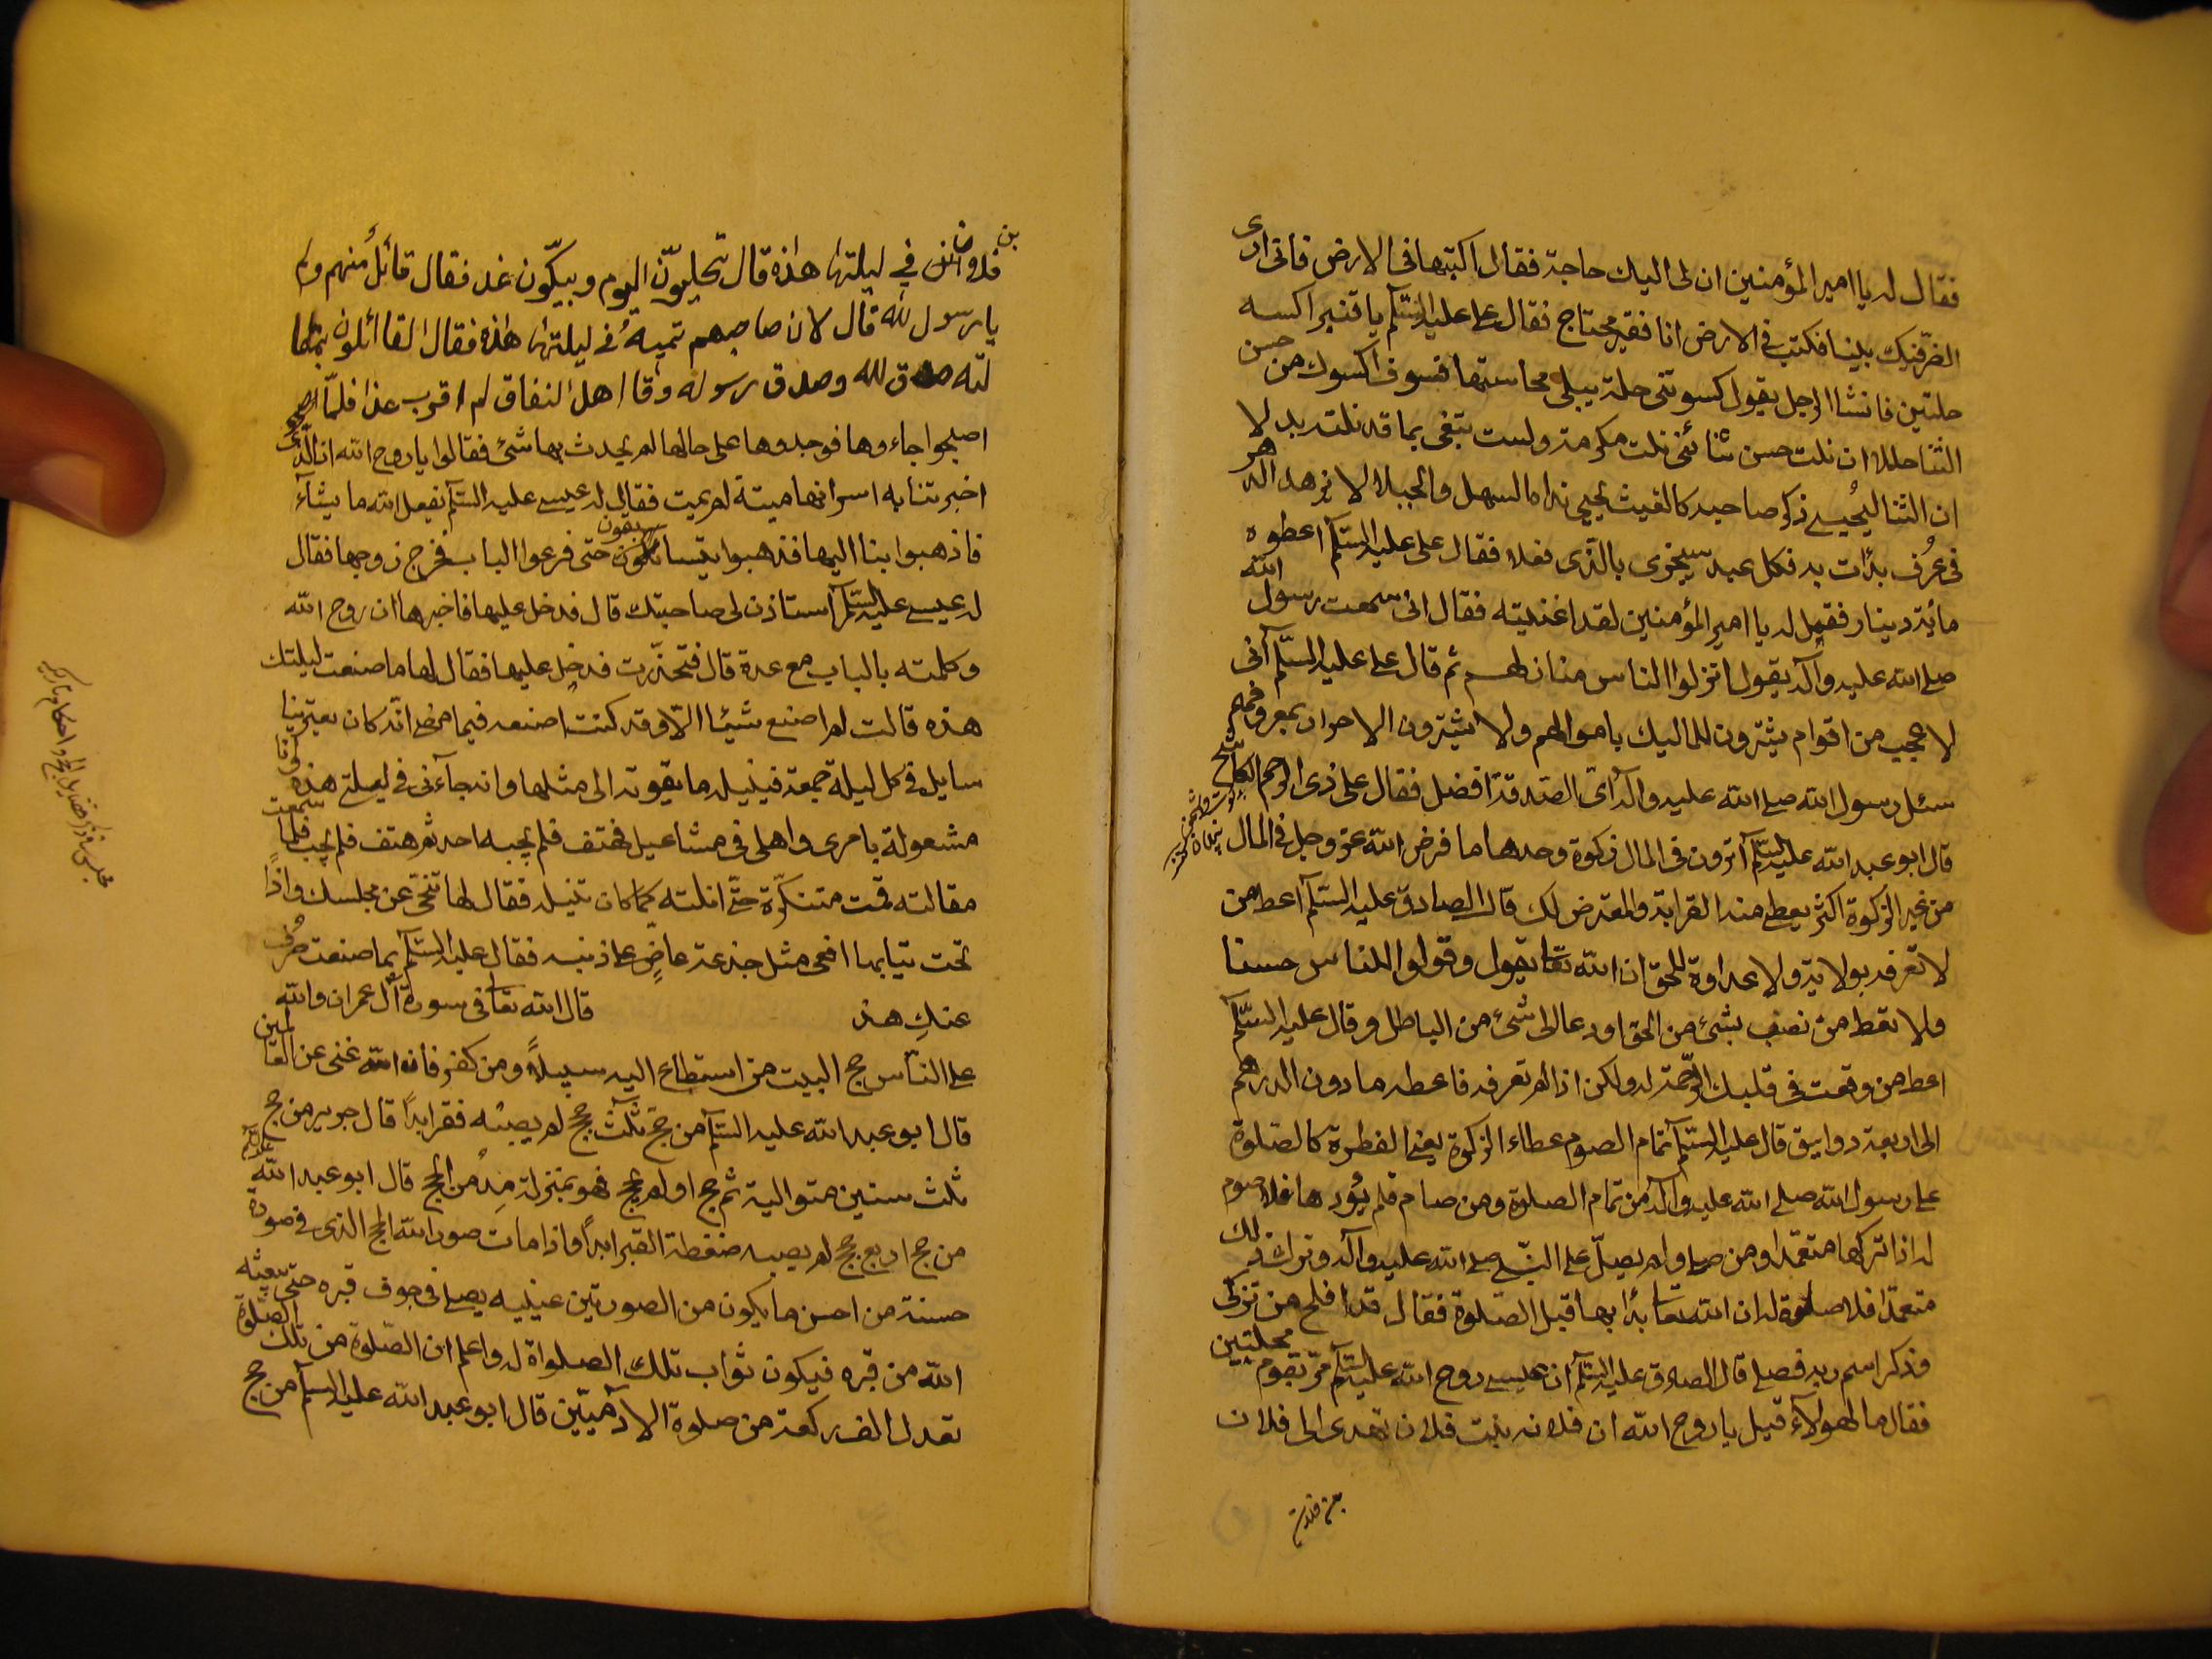 فقال له يا امير المؤمنين ان لى اليك حاجة فقال اكتبها فى الارض فانى ارى
الضر فيك بينا فكتب فى الارض انا فقير محتاج فقال على عليه السلام يا قنبر اكسه
حلتين فانشا الرجل يقول كسوتنى حلة يبلى محاسنها فسوف اكسوك من حسن
الثنا حللا ان نلت حسن ثنائى نلت مكرمة ولست تبقى بما قد نلته بدلا
ان الثنا ليحيى ذكر صاحبه كالغيث يحيى نداه السهل والجبلا لا تزهد الدهر
فى عرف بدات به فكل عبد سيجزى بالذى فعلا فقال على عليه السلام اعطوه
مائة دينار فقيل له يا امير المؤمنين لقد اغنيته فقال انى سمعت رسول الله
صلى الله عليه وآله يقول انزلوا الناس منازلهم ثم قال على عليه السلام انى
لا عجب من اقوام يشترون المماليك باموالهم ولا يشترون الاحرار بمعروفهم
سئل رسول الله صلى الله عليه وآله اى الصدقة افضل فقال على ذى الرحم الكاشح
قال ابو عبد الله عليه السلام اترون فى المال زكوة وحدها ما فرض الله عز وجل فى المال
من غير الزكوة اكثر يعطى منه القرابة والمعترض لك قال الصادق عليه السلام اعط من
لا تعرفه بولاية ولا عداوة للحق ان الله تعا يقول وقولوا للناس حسنا
ولا تعط من نصب بشئ من الحق او دعا الى شئ من الباطل وقال عليه السلام
اعط من وقعت فى قلبك الرحمة له ولكن اذا لم تعرفه فاعطه ما دون الدرهم
الى اربعة دوانيق قال عليه السلام تمام الصوم عطاء الزكوة يعنى الفطرة كالصلوة
على رسول الله صلى الله عليه وآله من تمام الصلوة ومن صام فلم يؤدها فلا صوم
له اذا تركها متعمدا ومن صلى ولم يصل على النبى صلى الله عليه وآله وترك ذلك
متعمدا فلا صلوة له ان الله تعا بدأ بها قبل الصلوة فقال قد افلح من تزكى
وذكر اسم ربه فصلى قال الصادق عليه السلام ان عيسى روح الله عليه السلام مر بقوم مجلبين
فقال ما لهولاء قيل يا روح الله ان فلانه بنت فلان تهدى الى فلان
بن فلان فى ليلتها هذه قال تجلبون اليوم ويبكون غد فقال قائل منهم ولم
يا رسول الله قال لان صاحبهم تميته فى ليلتها هذه فقال القائلون بمقا
لته صدق الله وصدق رسوله وقا اهل النفاق لم اقرب غدا فلما اصبحوا
اصبحوا جاءوها فوجدوها على حالها لم يحدث بها شئ فقالوا يا روح الله ان الذى
اخبرتنا به امس انها ميتة لم تميت فقال له عيسى عليه السلام يفعل الله ما يشآء
فاذهبوا بنا اليها فذهبوا يتسابقون حتى قرعوا الباب فخرج زوجها فقال
له عيسى عليه السلام استاذن لى صاحبتك قال فدخل عليها فاخبرها ان روح الله
وكلمته بالباب مع عدة قال فتخدرت فدخل عليها فقال لها ما صنعت ليلتك
هذه قالت لم اصنع شيئا الا وقد كنت اصنعه فيما مضى انه كان يعترينا
سايل فى كل ليلة جمعة فينيله ما يقوته الى مثلها وانه جآءنى فى ليلتى هذه وانا
مشغولة بامرى واهلى فى مشاغيل فهتف فلم يجبه احد ثم هتف فلم يجب فلما سمعت
مقالته قمت متنكرة حتى انلته كما كان تنيله فقال لها تنحى عن مجلسك واذا
تحت ثيابها افعى مثل جذعة عاض على ذنبه فقال عليه السلام بما صنعت صرف
عنك هذ قال الله تعا فى سورة آل عمران ولله
على الناس حج البيت من استطاع اليه سبيلا ومن كفر فان الله غنى عن العالمين
قال ابو عبد الله عليه السلام من حج ثلث حجج لم يصبه فقر ابدا قال جرير من حج
ثلث سنين متوالية ثم حج او لم يحج فهو بمنزلة مدمن الحج قال ابو عبد الله عليه السلام
من حج اربع حجج لم يصبه ضغطة القبر ابدا فاذا مات صور الله الحج الذى فى صورة
حسنة من احسن ما يكون من الصور بين عينيه يصلى فى جوف قبره حتى يبعثه
الله من قبره فيكون ثواب تلك الصلواة له واعلم ان الصلوة من تلك الصلوة
تعدل الف ركعة من صلوة الادميين قال ابو عبد الله عليه السلام من حج